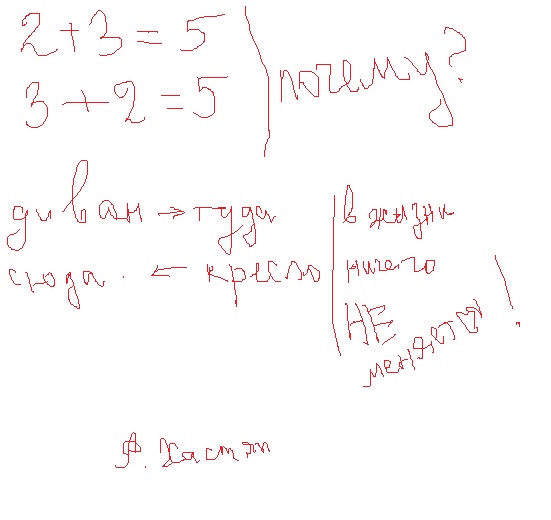 2+3=5
3+2=5
почему?
диван → туда
сюда. ← кресло
в жизни
ничего
НЕ
меняется!
А. Хастэп